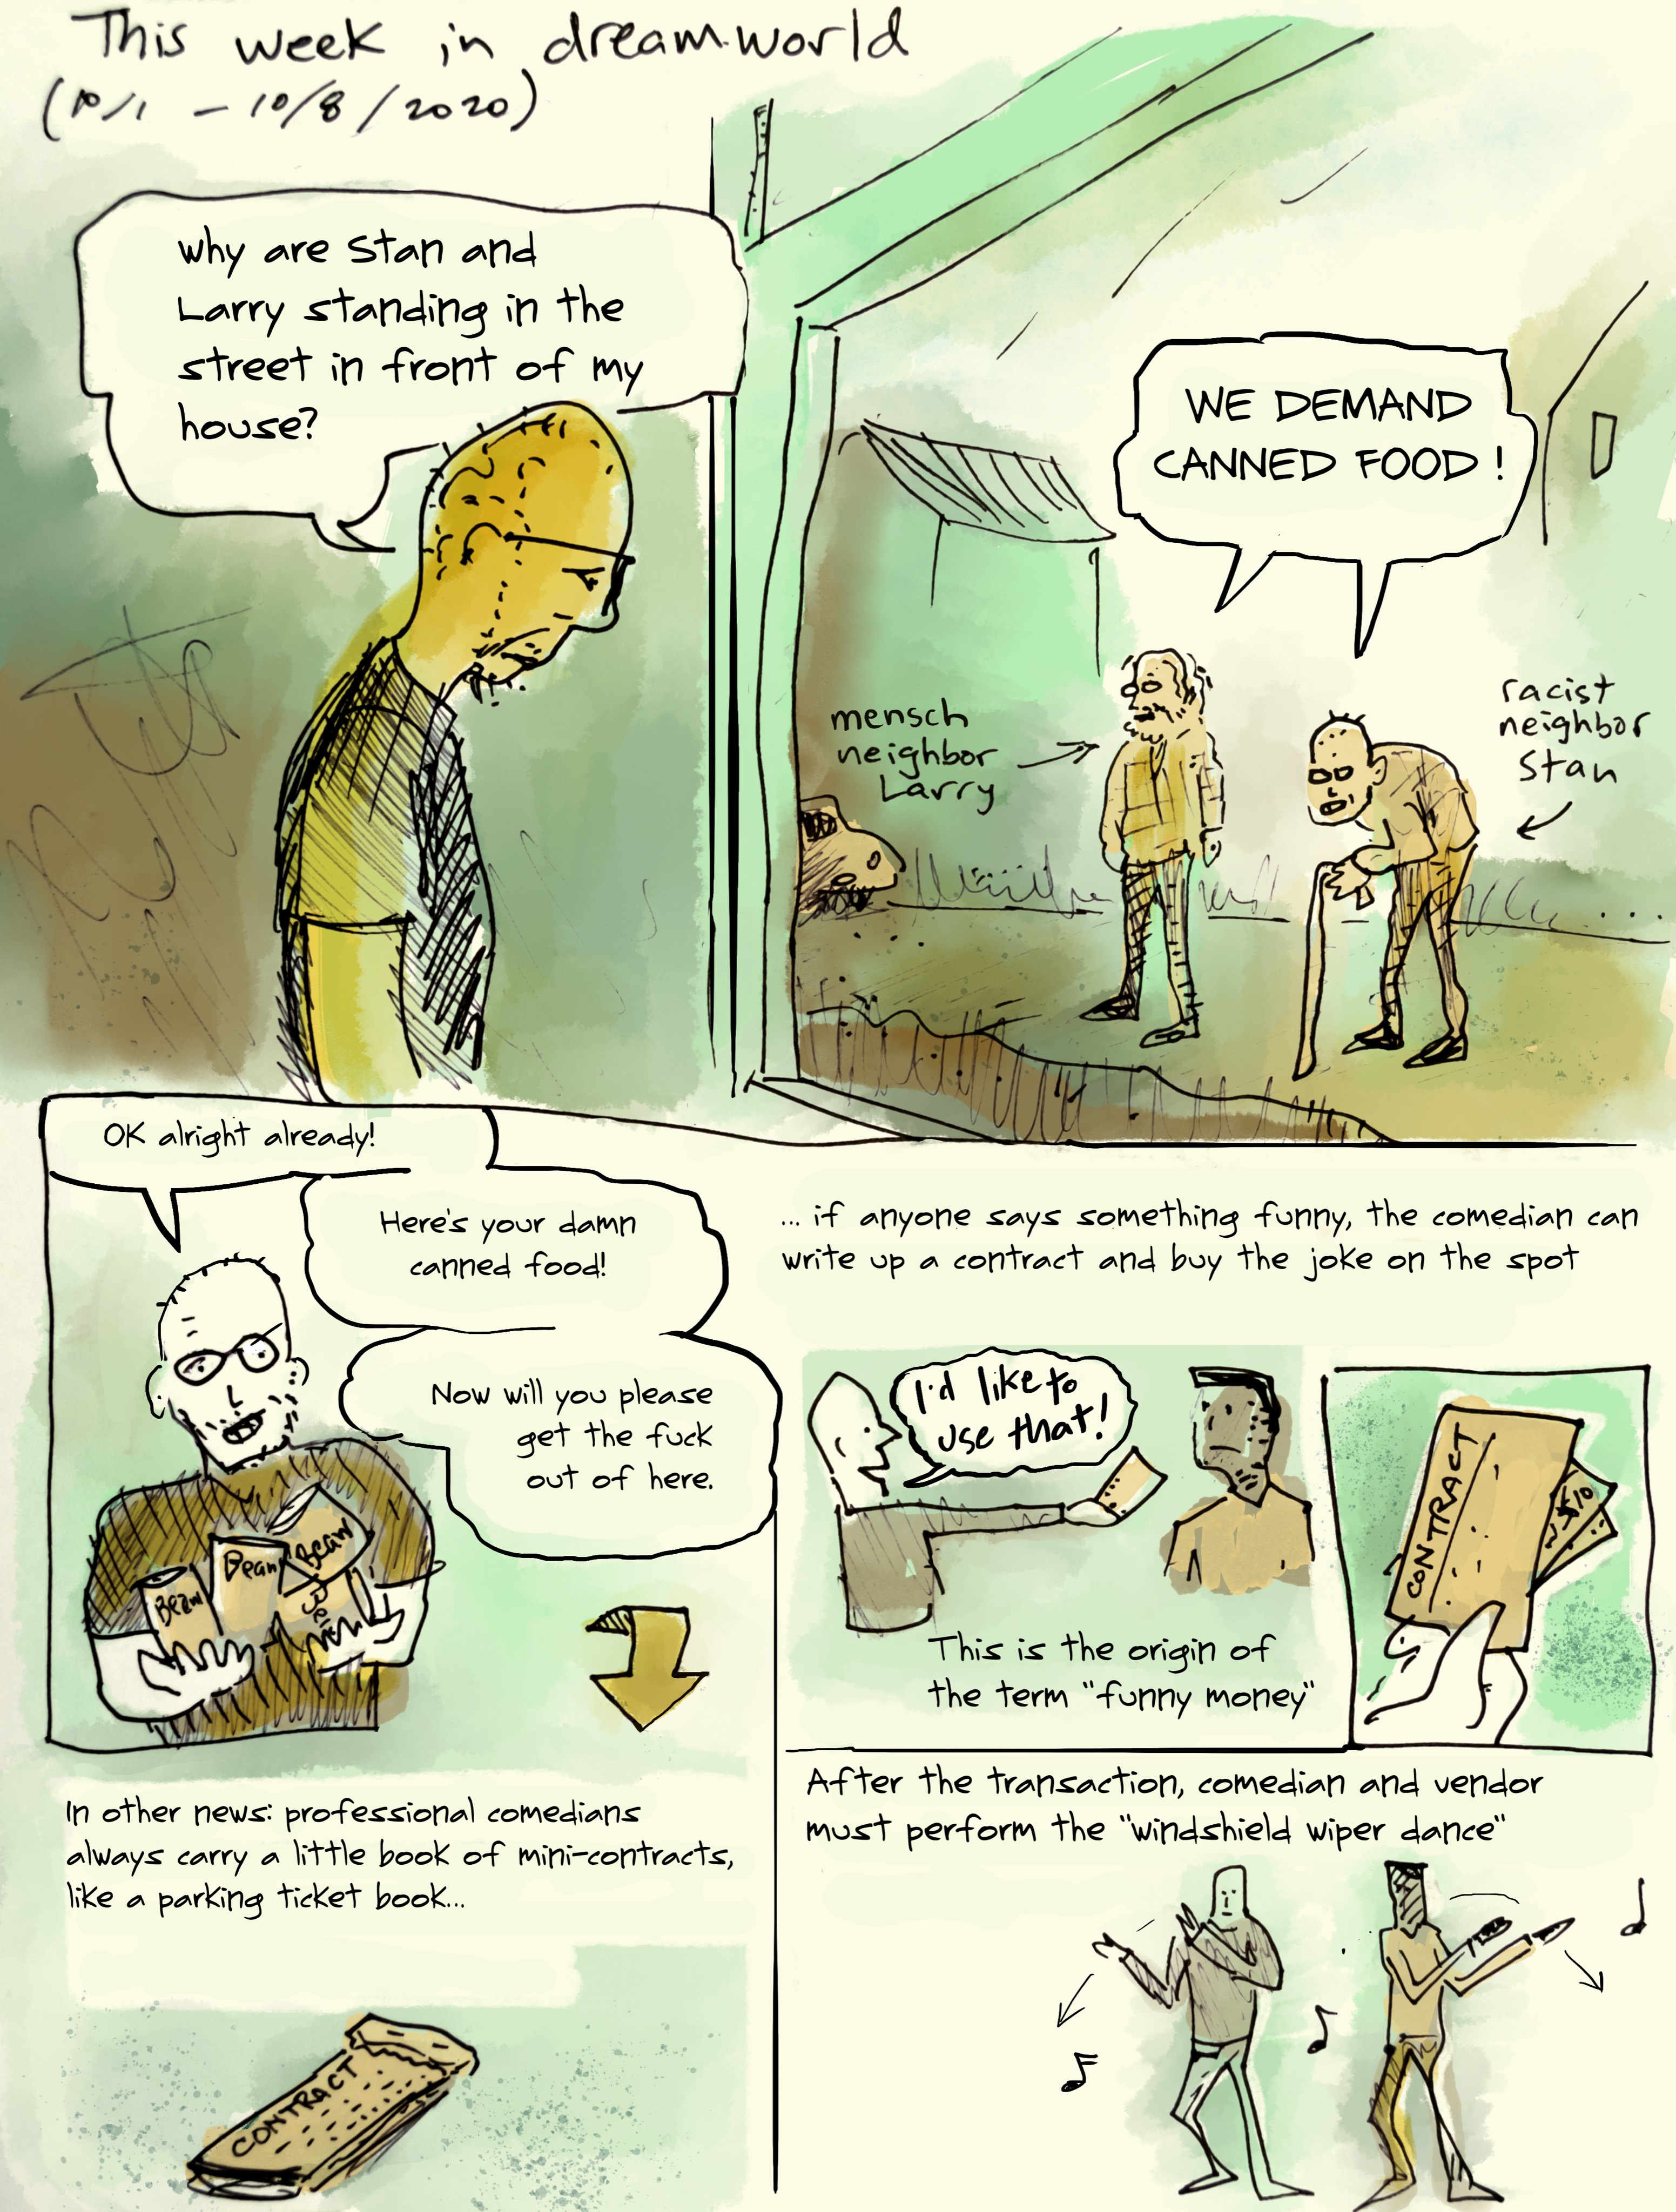 This week in dreamworld
(10/1 – 10/8/2020)
why are Stan and
Larry standing in the
street in front of my
house?
WE DEMAND
CANNED FOOD!
mensch
neighbor
Larry
racist
neighbor
Stan
OK alright already!
Here's your damn
canned food!
Now will you please
get the fuck
out of here.
Bean
Bean
Bean
In other news: professional comedians
always carry a little book of mini-contracts,
like a parking ticket book...
CONTRACT
... if anyone says something funny, the comedian can
write up a contract and buy the joke on the spot
I'd like to
use that!
CONTRACT
$10
This is the origin of
the term "funny money"
After the transaction, comedian and vendor
must perform the "windshield wiper dance"